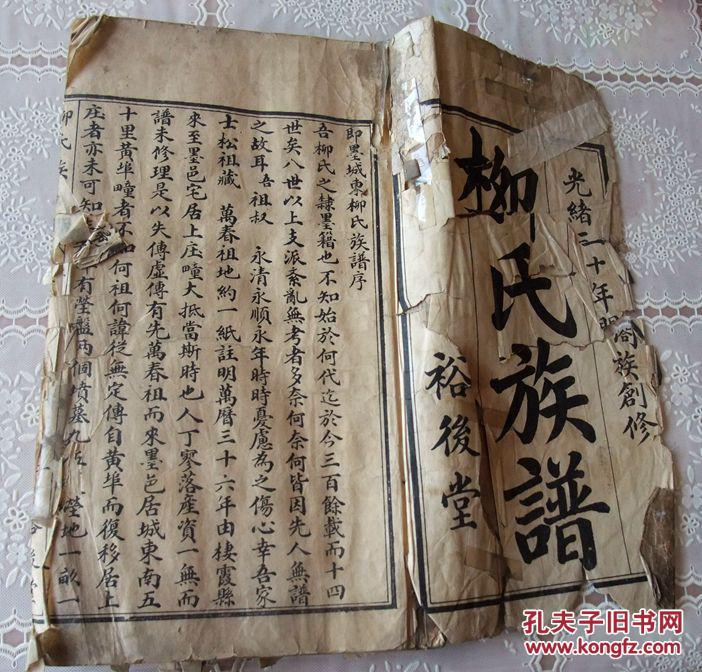 光緒二十年 閤族創修
柳氏族譜
裕後堂
即墨城東柳氏族譜序
吾柳氏之隸墨籍也不知始於何代迄於今三百餘載而十四
世矣八世以上支派紊亂無考者多奈何奈何皆因先人無譜
之故耳吾祖叔 永清永順永年時時憂慮為之傷心幸吾家
士松祖藏 萬春祖地約一紙註明萬曆三十六年由棲霞縣
來至墨邑宅居上庄疃大抵當斯時也人丁寥落產資一無而
譜未修理是以失傳虛傳有先萬春祖而來墨邑居城東南五
十里黃埠疃者不知何祖何諱從無定傳自黃埠而復移居上
庄者亦未可知 有塋盤兩個墳墓九 塋地一畝一
柳氏族
孔夫子旧书网
kongfz.com
孔夫子旧书网
www.kongfz.com